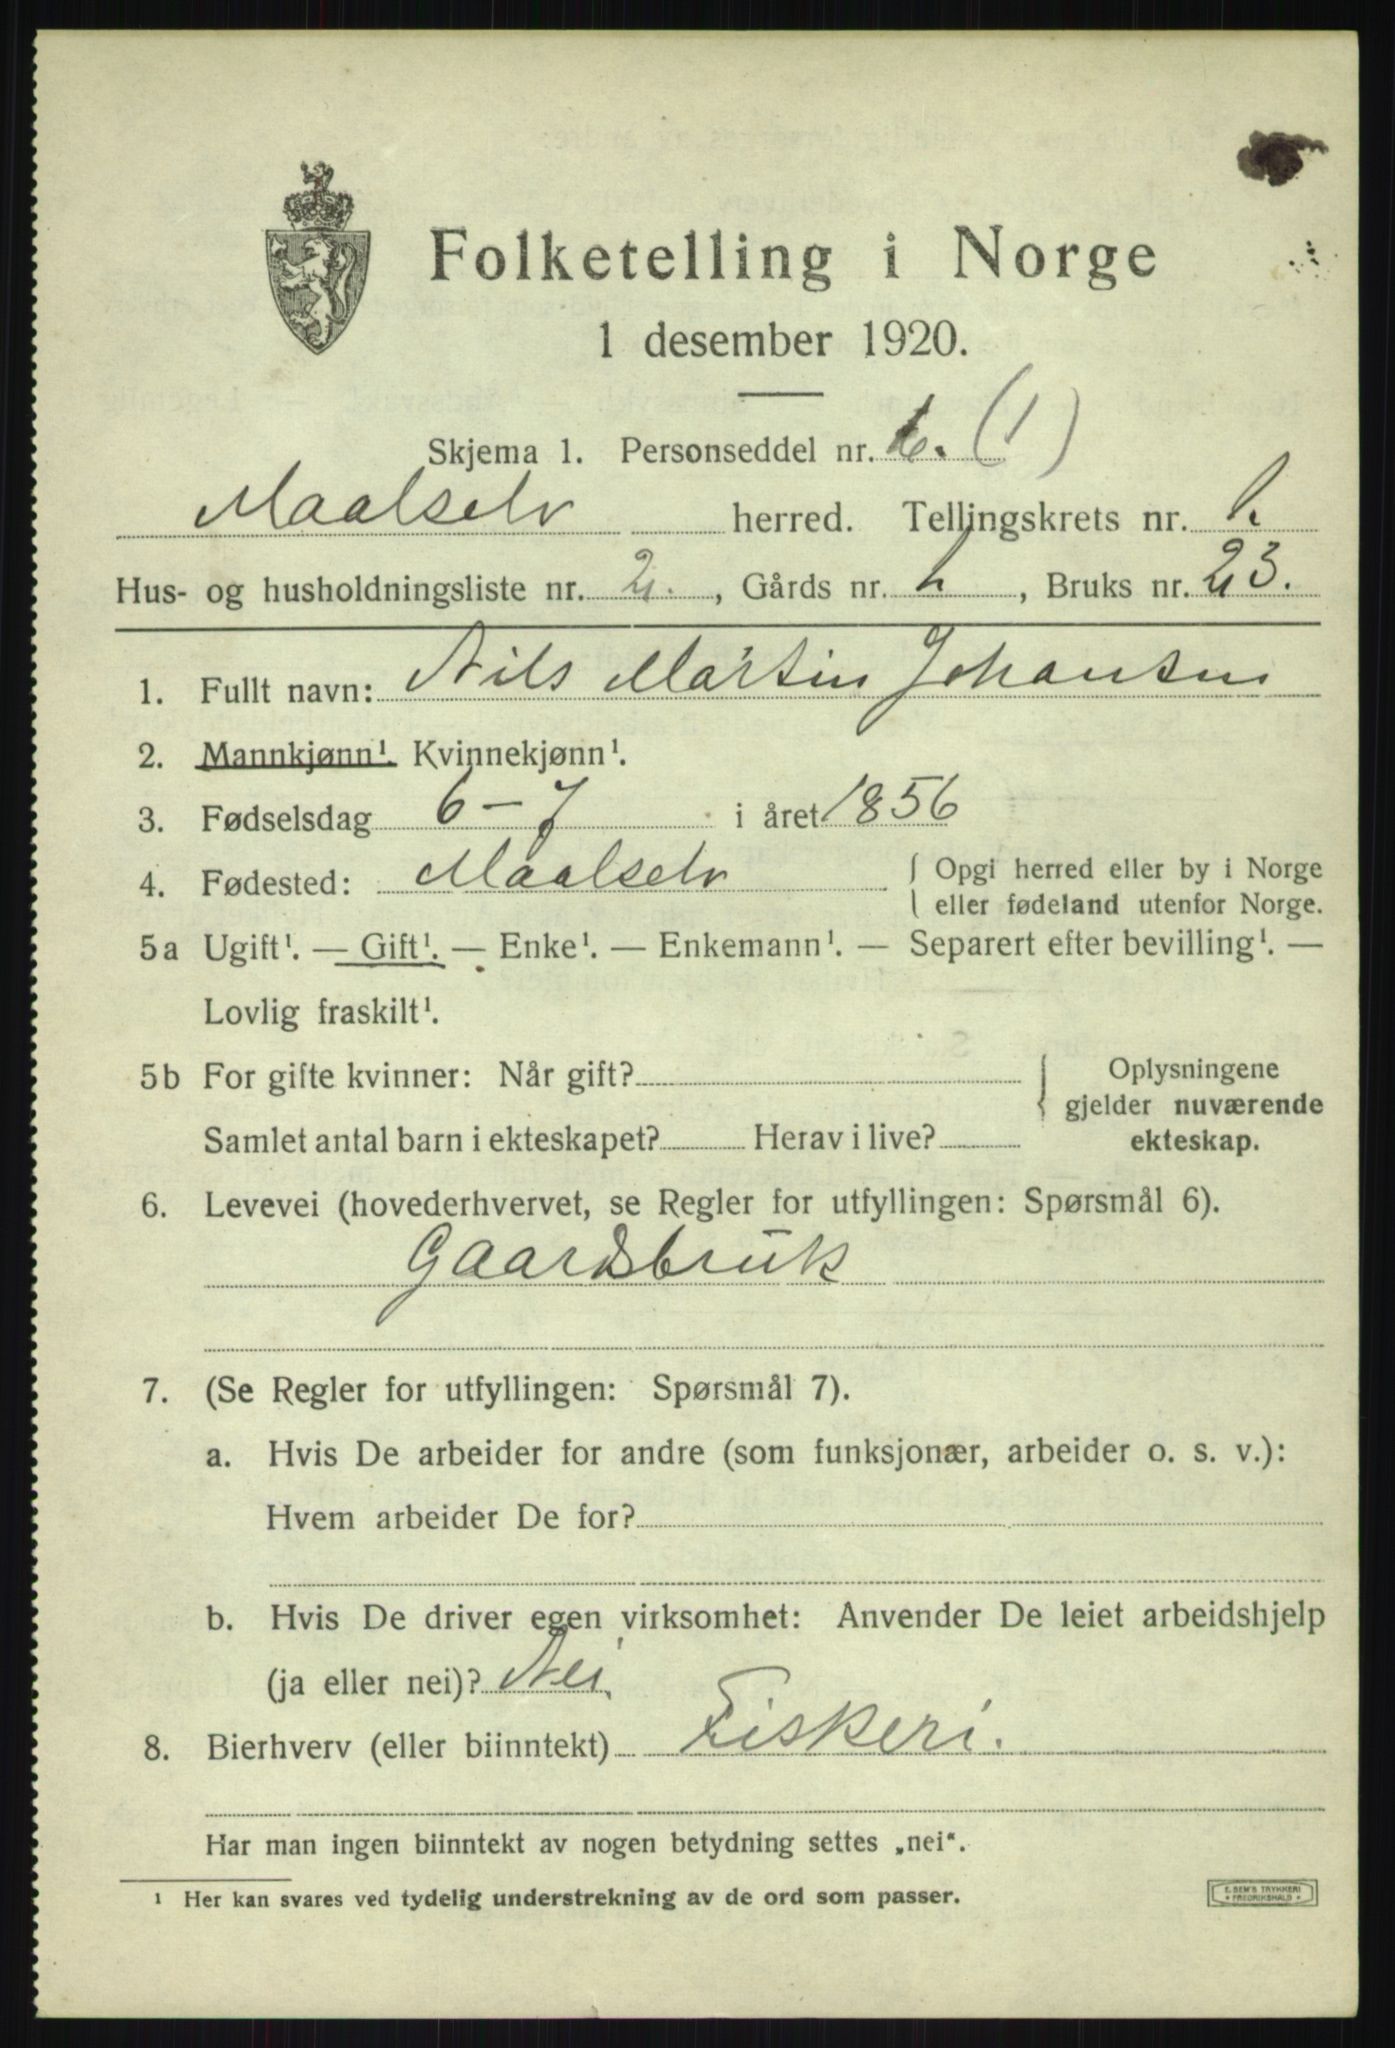 Folketelling i Norge
1 desember 1920.
Skjema 1. Personseddel nr. (1)
Maalselv herred. Tellingskrets nr.
Hus- og husholdningsliste nr. 2. , Gårds nr. , Bruks nr. 23.
1. Fullt navn: Nils Martin Johansen
2. Mannkjønn¹. Kvinnekjønn¹.
3. Fødselsdag 6-7 i året 1856
4. Fødested: Maalselv { Opgi herred eller by i Norge
eller fødeland utenfor Norge.
5a Ugift¹. — Gift¹. — Enke¹. — Enkemann¹. — Separert efter bevilling¹. —
Lovlig fraskilt¹.
5b For gifte kvinner: Når gift? { Oplysningene
gjelder nuværende
Samlet antal barn i ekteskapet? Herav i live? ekteskap.
6. Levevei (hovederhvervet, se Regler for utfyllingen: Spørsmål 6).
Gaardsbruk
7. (Se Regler for utfyllingen: Spørsmål 7).
a. Hvis De arbeider for andre (som funksjonær, arbeider o. s. v.):
Hvem arbeider De for?
b. Hvis De driver egen virksomhet: Anvender De leiet arbeidshjelp
(ja eller nei)? Nei
8. Bierhverv (eller biinntekt) Fiskeri.
Har man ingen biinntekt av nogen betydning settes „nei“.
¹ Her kan svares ved tydelig understrekning av de ord som passer.
E. SEM'S TRYKKERI
FREDRIKSHALD